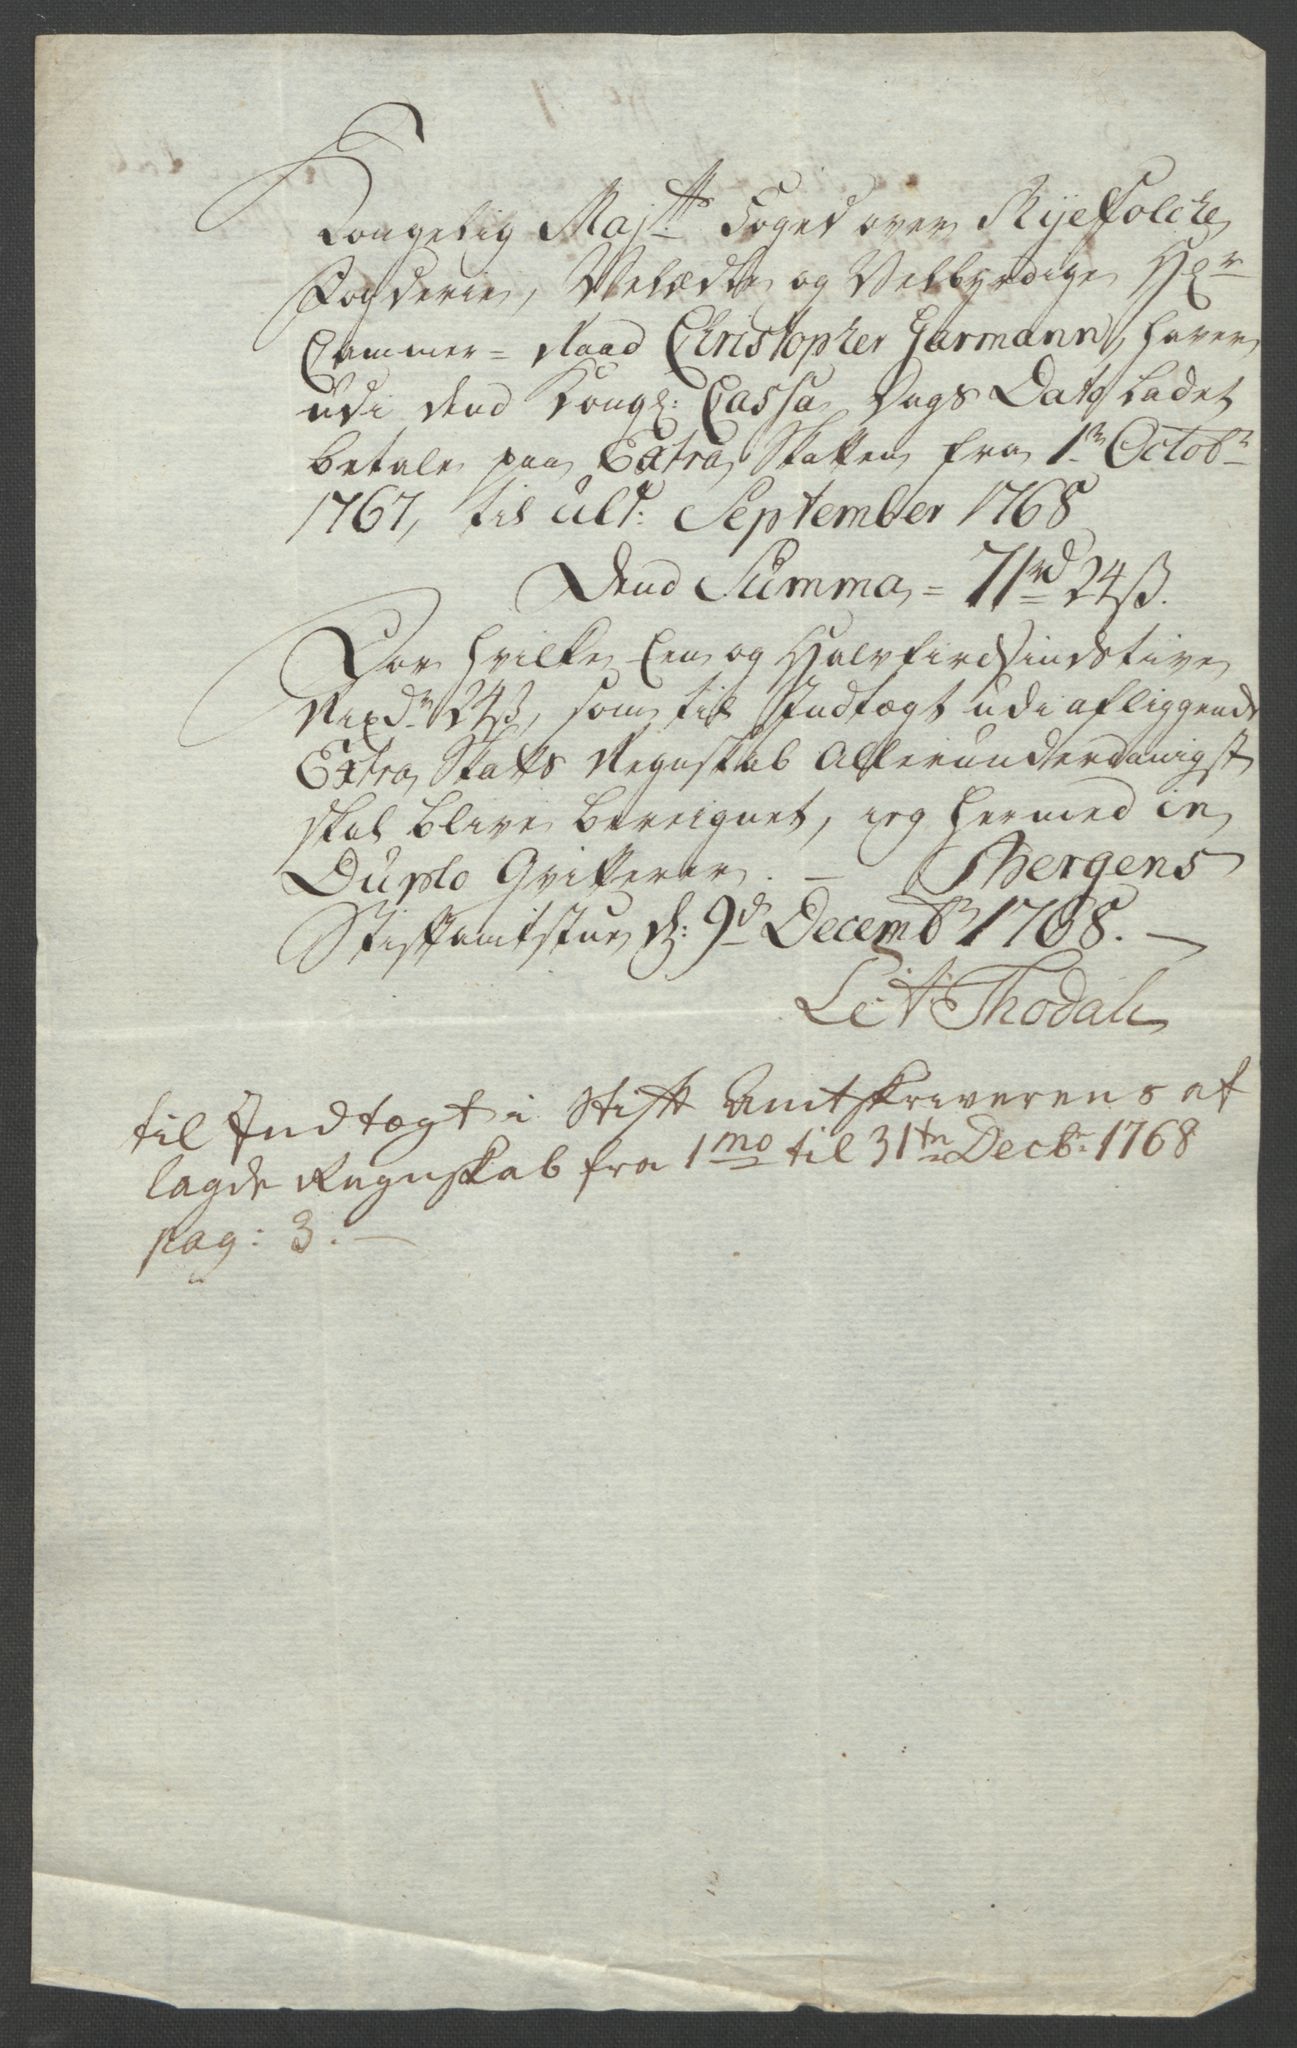 Kongelig Maj:tts Foged over Ryefolche
Fogderie, Velædle og Velbyrdige Hr
Cammer= Raad Christopher Garmann, haver
udi dend Kongl: Cassa Dags Dato ladet
betale paa Extra Skatten fra 1te Octobr
1767, til ult: September 1768
Dend Summa = 71rd 24ß.
For hvilke Een og Halvfirdsindstive
Rixdr 24ß, som til Indtægt udi afliggende
Extra Skatts Regnskab Allerunderdanigst
skal blive bereignet, ieg hermed in
Duplo Qvitterer. — Bergens
Stiftamtstue d: 9d Decembr 1768. —
Thodal
til Indtægt i Stift Amtskriverens af
lagde Regnskab fra 1mo til 31tn Decbr 1768
pag: 3. —